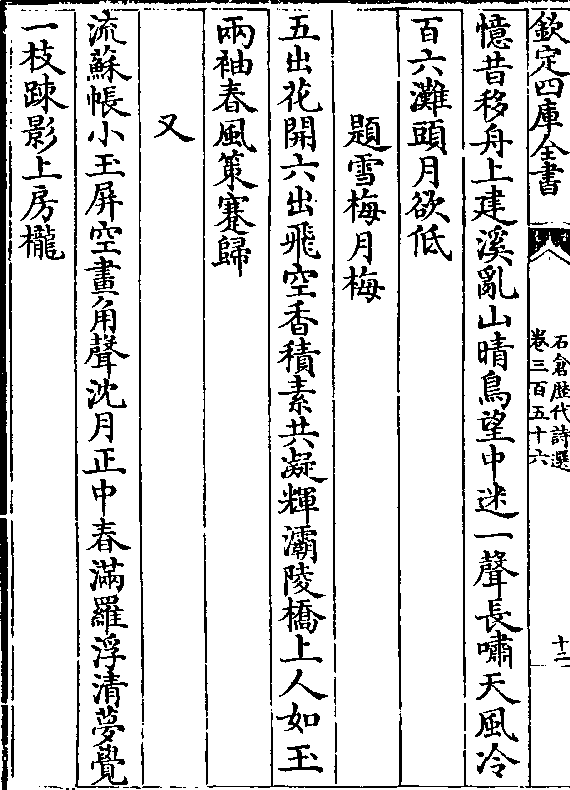 欽定四庫全書
石倉歴代詩選
卷三百五十六
十二
憶昔移舟上建溪亂山晴鳥望中迷一聲長嘯天風冷
百六灘頭月欲低
題雪梅月梅
五出花開六出飛空香積素共凝輝灞陵橋上人如玉
兩袖春風策蹇歸
又
流蘇帳小玉屏空畫角聲沈月正中春滿羅浮清夢覺
一枝踈影上房櫳